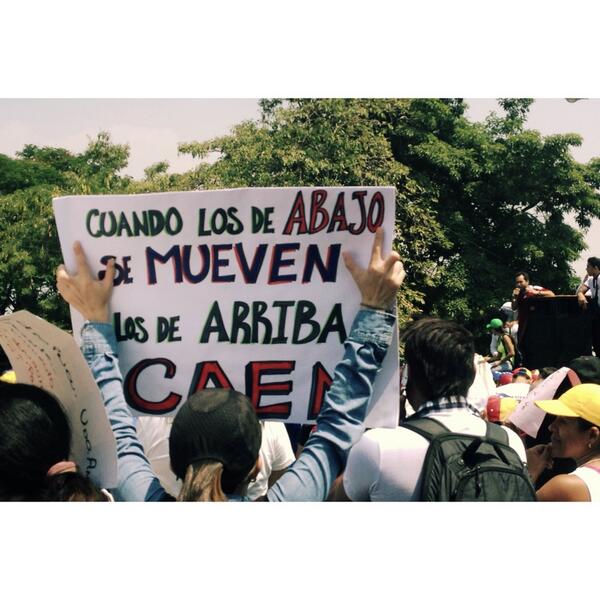 CUANDO LOS DE ABAJO
SE MUEVEN
LOS DE ARRIBA
CAEN